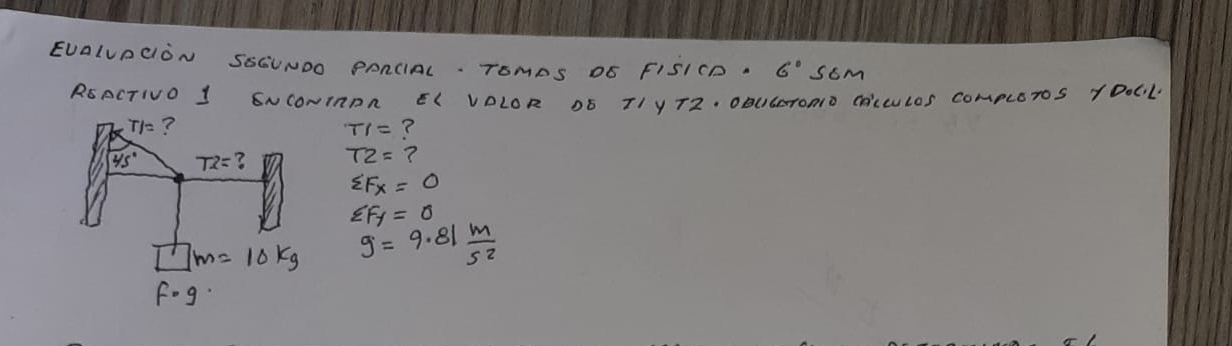 EVALUACIÓN SEGUNDO PARCIAL . TEMAS DE FÍSICA . 6° SEM
REACTIVO 1 ENCONTRAR EL VALOR DE T1 Y T2 . OBLIGATORIO CÁLCULOS COMPLETOS Y D.C.L.
T1= ?
45°
T2= ?
m= 10 Kg
F=g.
T1= ?
T2= ?
ΣFx = 0
ΣFy = 0
g= 9.81 m/s²